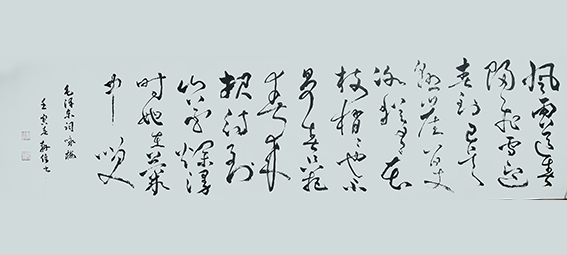 風雨送春
歸飛雪迎
春到已是
懸崖百丈
冰猶有花
枝俏〻也不
爭春只把
春來
报待到
山花烂漫
时她在丛
中笑
毛泽东词咏梅
壬寅